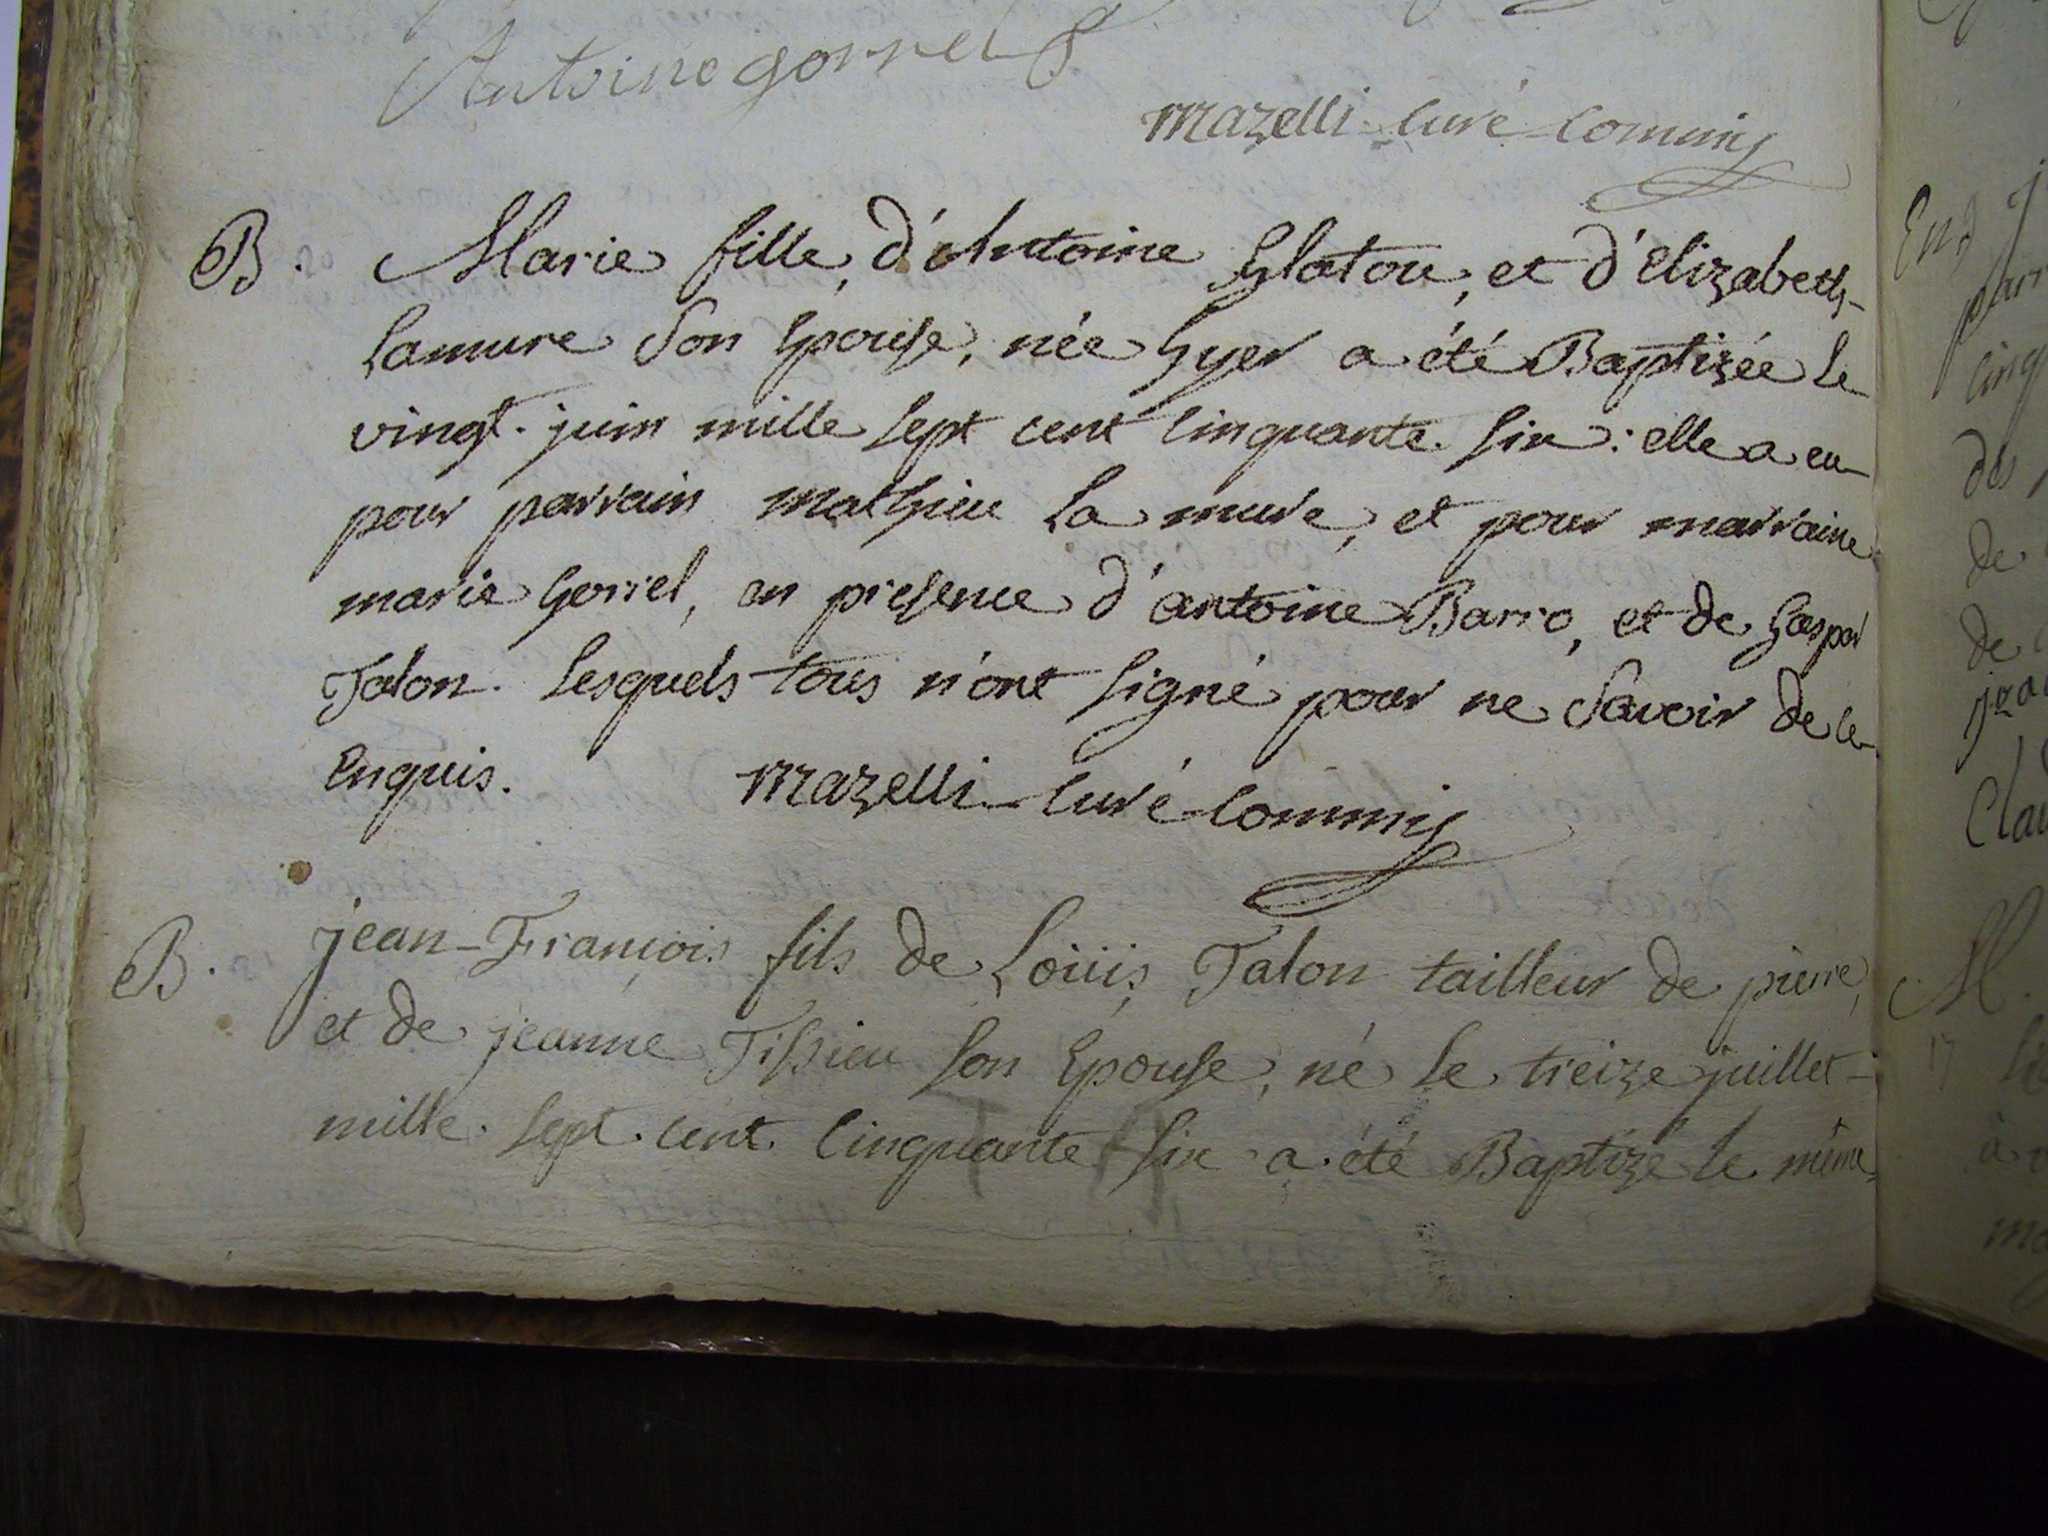 Antoine gorrel
Mazelli curé commis
B. Marie fille, d'Antoine Glatou, et d'Elizabeth
Lamure son Epouse, née hyer a été Baptizée le
vingt juin mille sept cent cinquante six : elle a eu
pour parrain mathieu La mure, et pour marraine
marie Gorrel, en presence d'antoine Barro, et de Gaspar
Talon. Lesquels tous n'ont signé pour ne savoir de ce
Enquis. Mazelli curé commis
B. jean-François fils de Loüis Talon tailleur de pierre,
et de jeanne Tissieu son Epouse, né le treize juillet
mille sept cent cinquante six a été Baptizé le même
Clau
M.
17